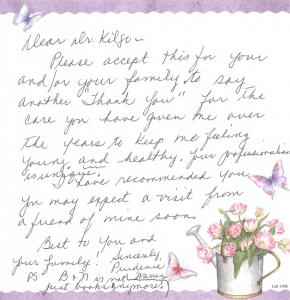 Dear Dr. Kilgo -
Please accept this for you
and/or your family to say
another "Thank You" for the
care you have given me over
the years to keep me feeling
young and healthy. Your professionalism
is unique!
I have recommended you
you may expect a visit from
a friend of mine soon.
Best to You and
your family! Sincerely,
Prudence
PS B & N is not
just books anymore!